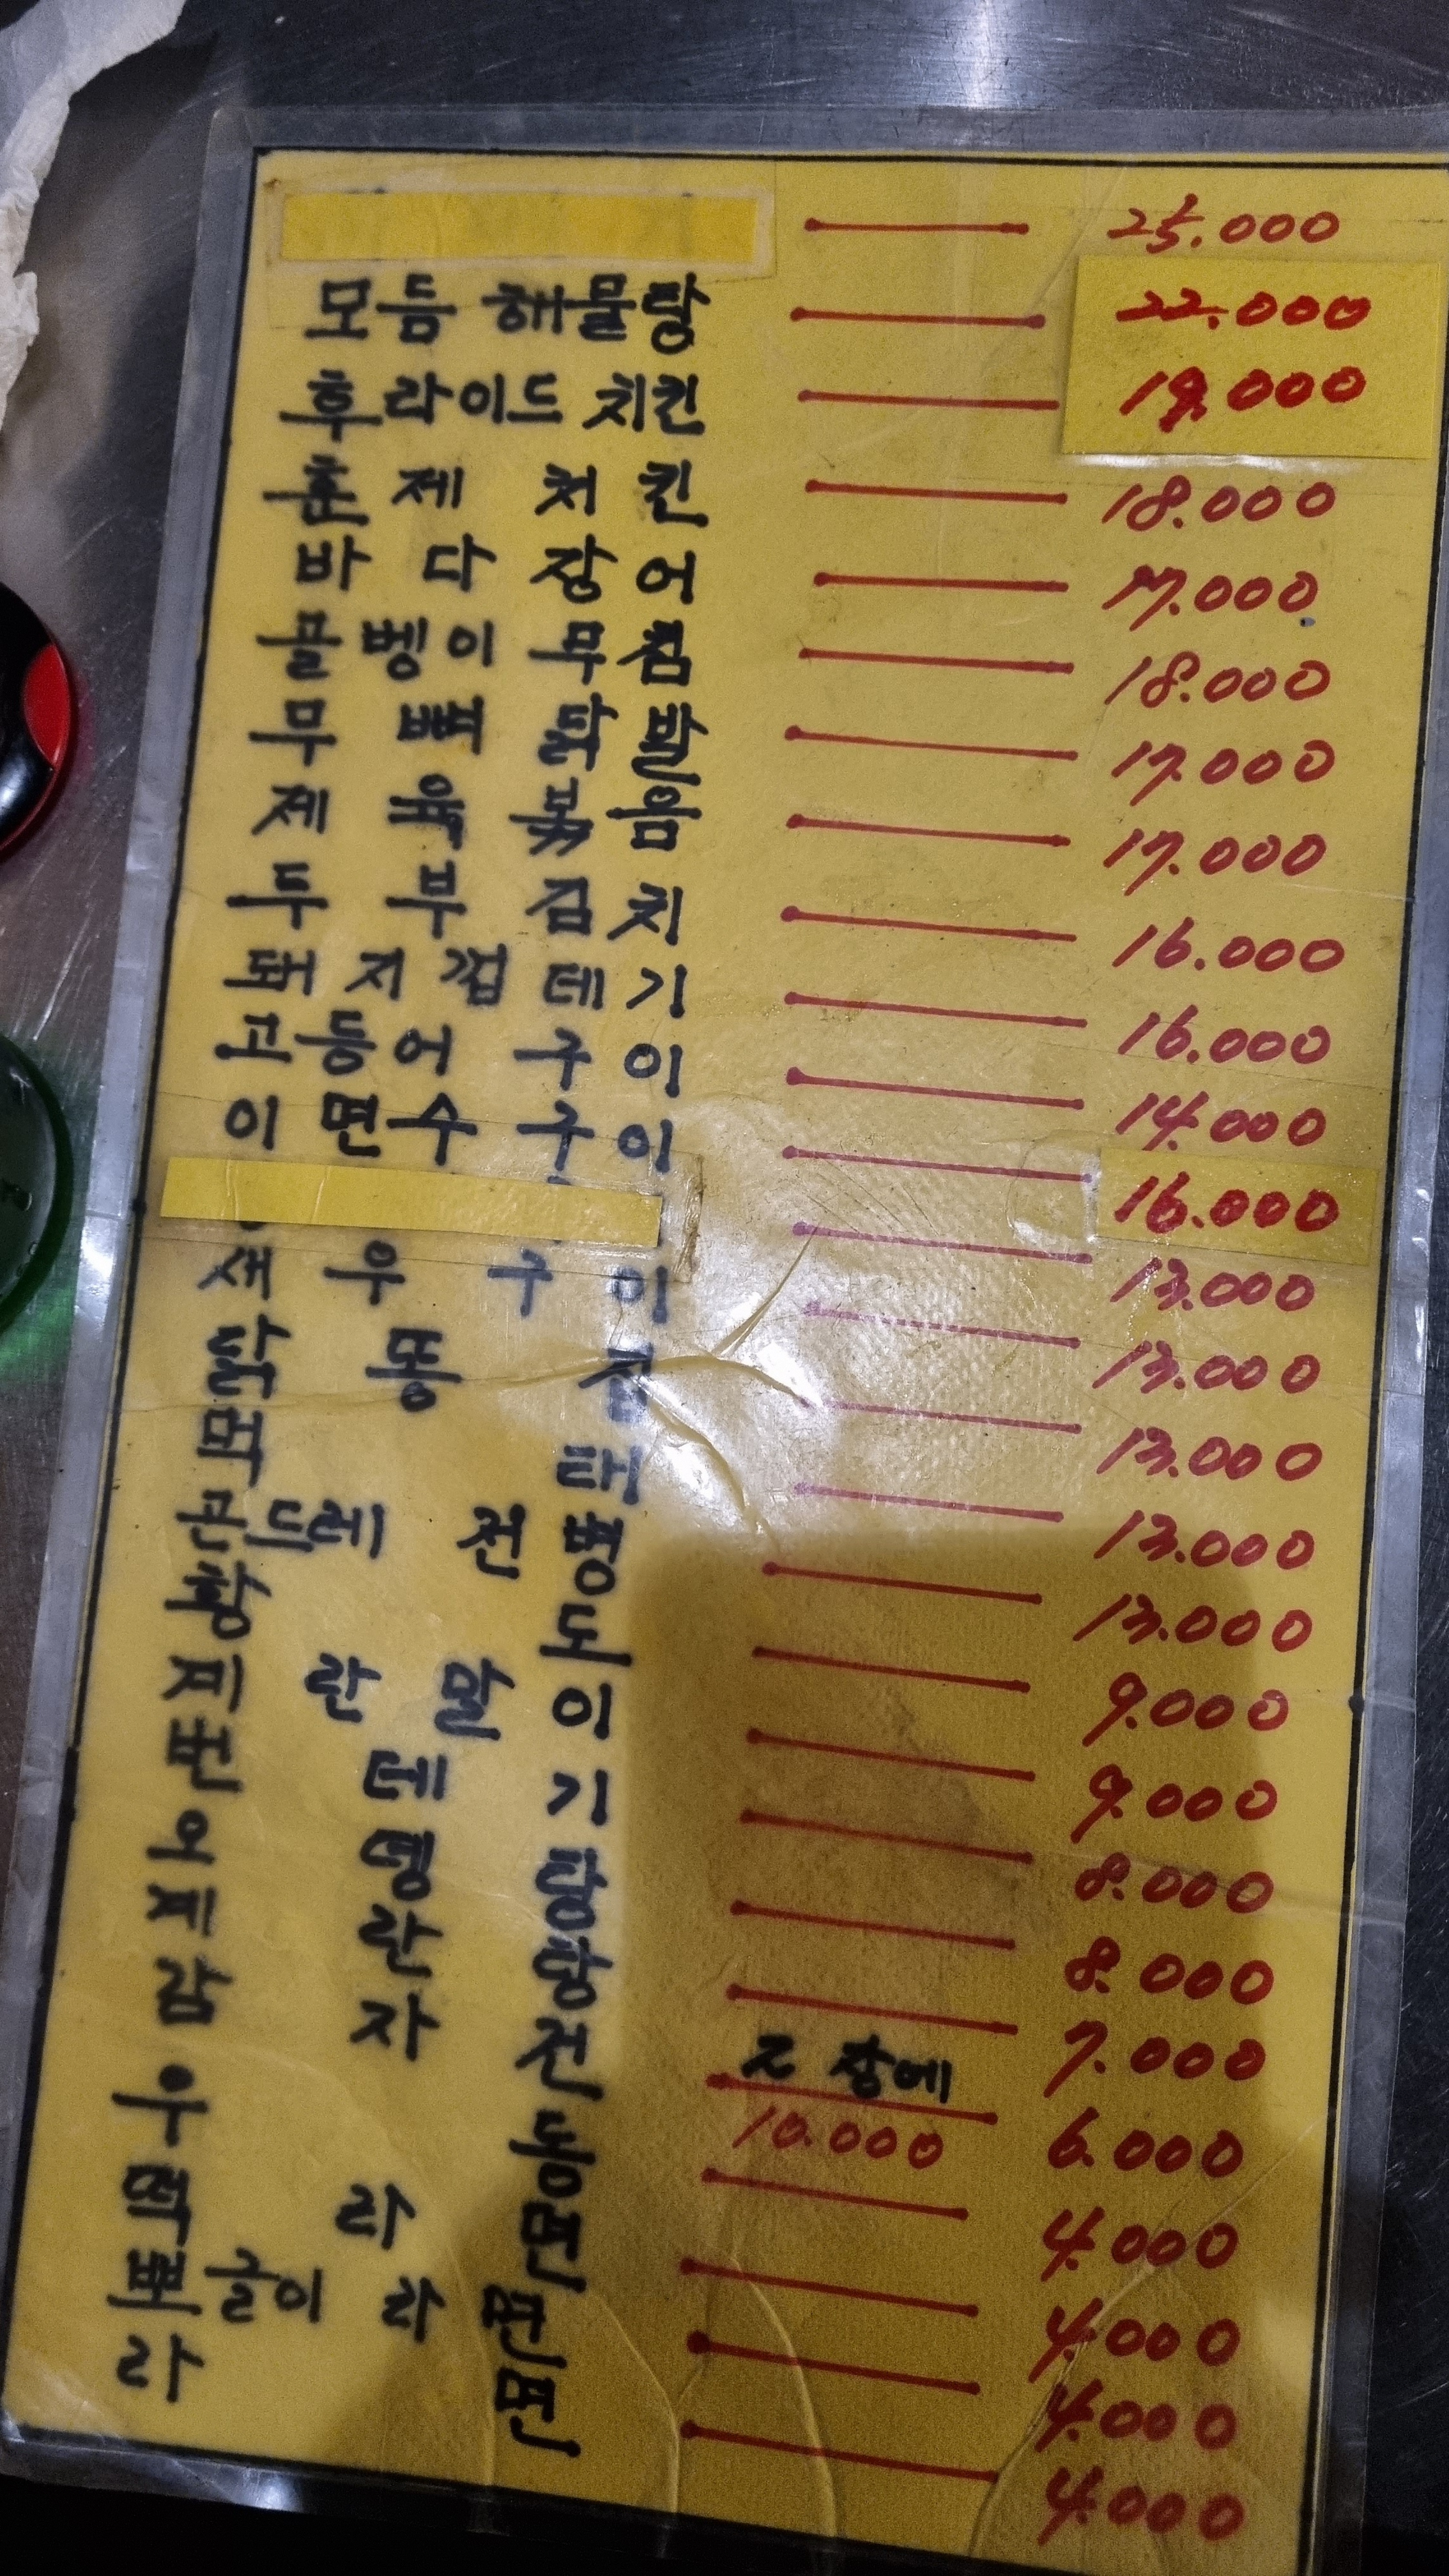 25.000
모듬 해물탕 22.000
후라이드 치킨 19.000
훈제 치킨 18.000
바다장어 17.000
골벵이 무침 18.000
무뼈닭발 17.000
제육볶음 17.000
두부김치 16.000
돼지껍테기 16.000
고등어구이 14.000
이면수구이 16.000
13.000
새우구이 13.000
닭똥집 13.000
먹태 13.000
곤드레 전병 13.000
황도 9.000
계란말이 9.000
번테기 8.000
오뎅탕 8.000
계란탕 7.000
감자전 2장에 10.000 6.000
우동 4.000
떡라면 4.000
뽀글이 라면 4.000
라면 4.000